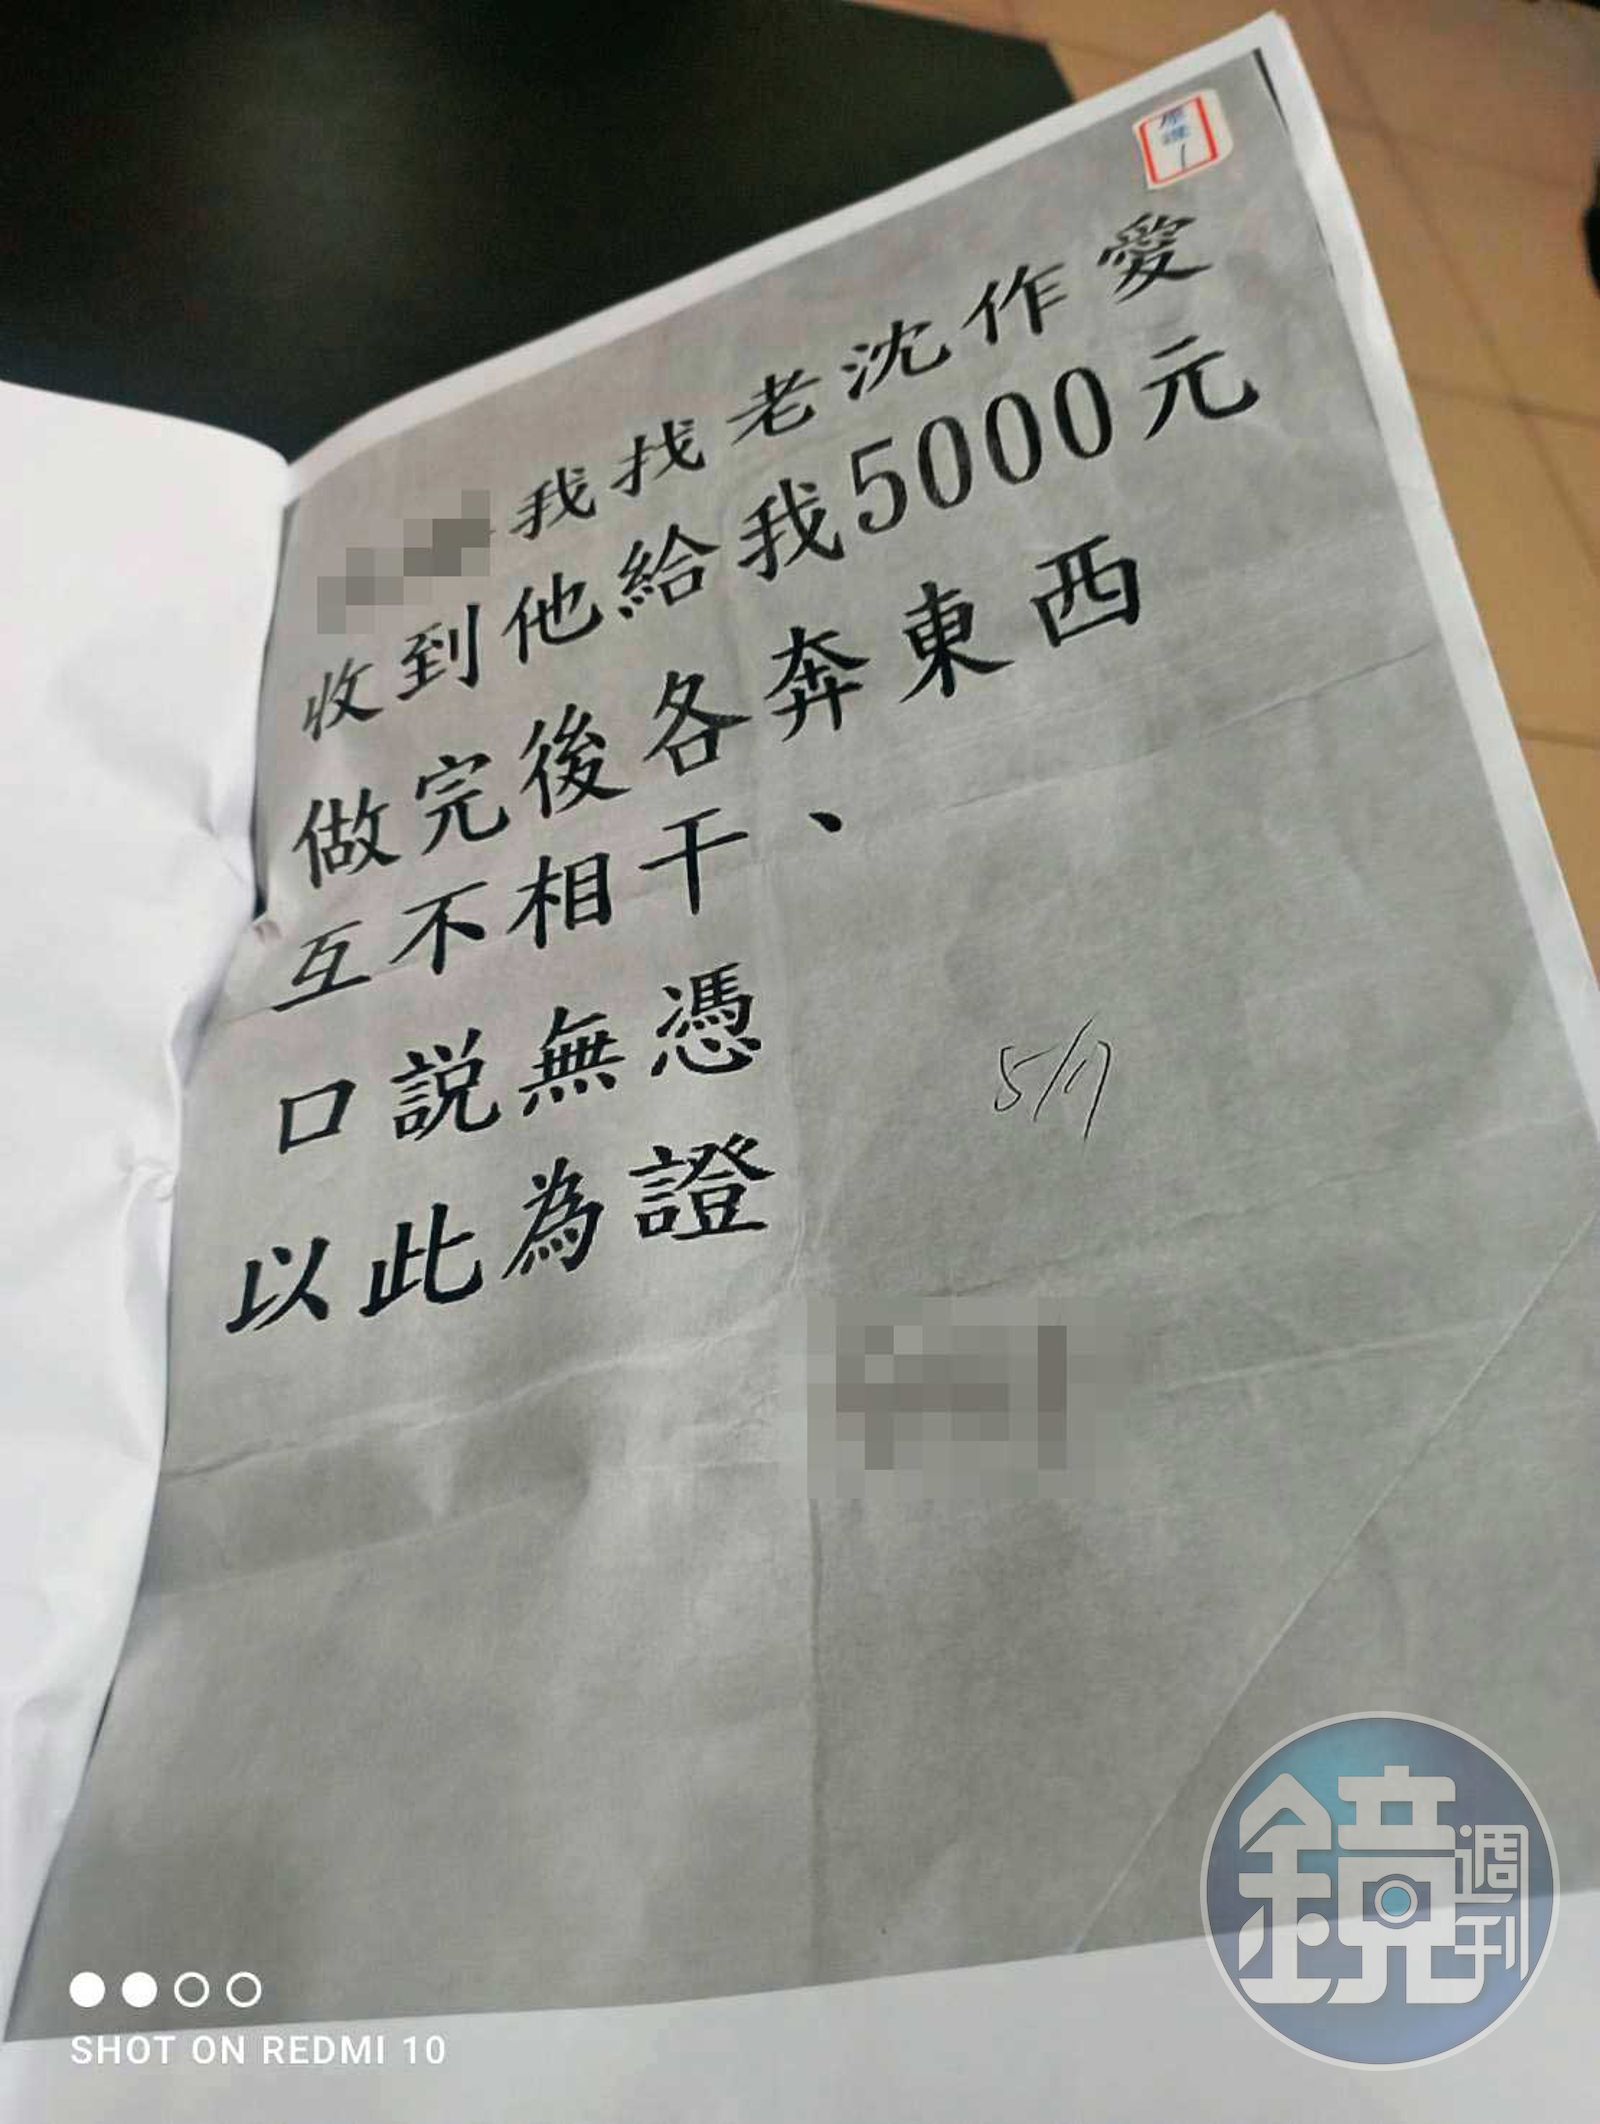 原證
1
我找老沈作愛
收到他給我5000元
做完後各奔東西
互不相干、
口説無憑
以此為證
5/17
鏡週刊
SHOT ON REDMI 10